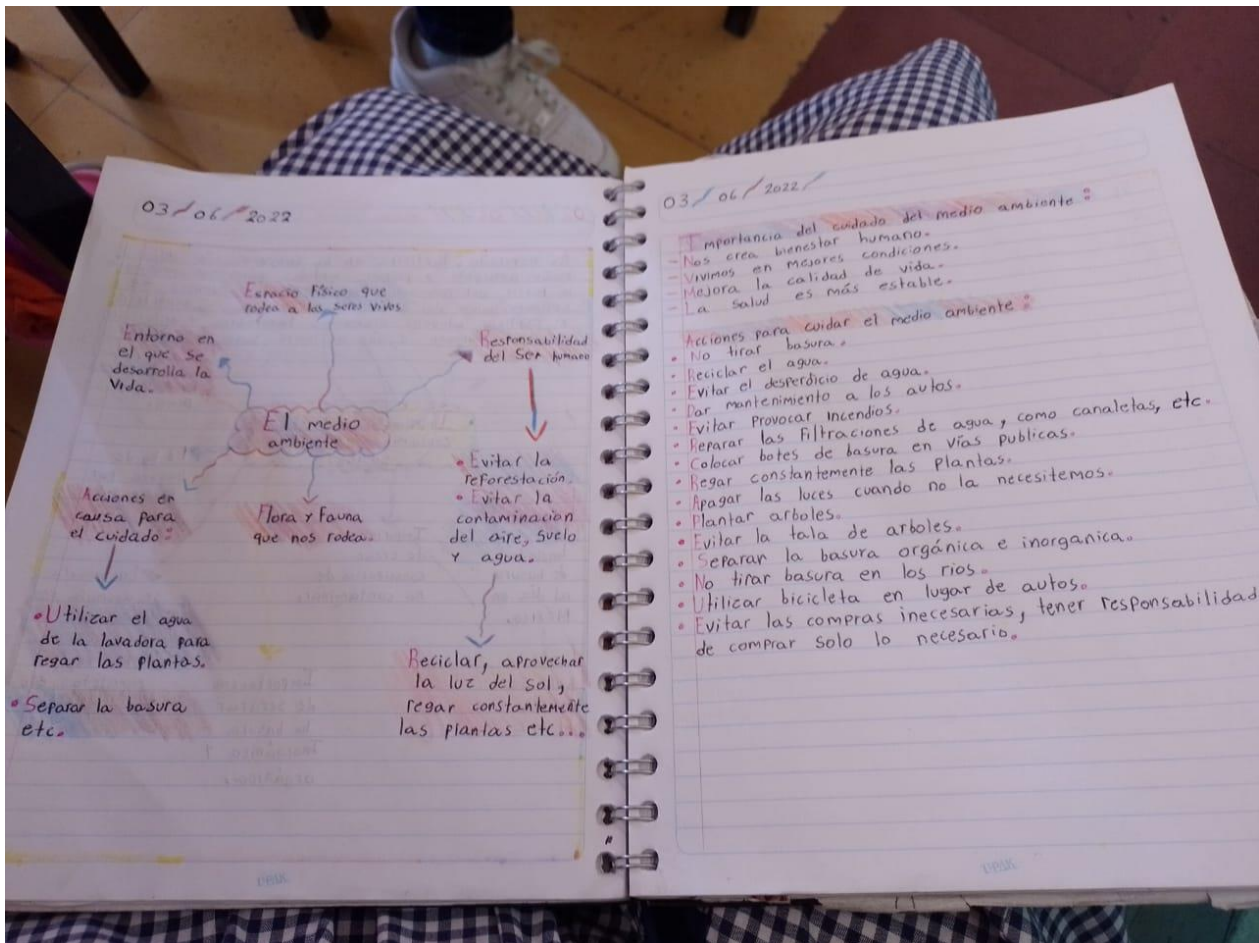 03/06/2022
Espacio Físico que
rodea a los seres vivos
Entorno en
el que se
desarrolla la
Vida.
Responsabilidad
del Ser humano
El medio
ambiente
Acciones en
causa para
el cuidado:
Flora y Fauna
que nos rodea.
• Evitar la
reforestación.
• Evitar la
contaminacion
del aire, suelo
y agua.
• Utilizar el agua
de la lavadora para
regar las plantas.
• Separar la basura
etc.
Reciclar, aprovechar
la luz del sol,
regar constantemente
las plantas etc...
03/06/2022/
Importancia del cuidado del medio ambiente:
- Nos crea bienestar humano.
- Vivimos en mejores condiciones.
- Mejora la calidad de vida.
- La salud es más estable.
Acciones para cuidar el medio ambiente:
• No tirar basura.
• Reciclar el agua.
• Evitar el desperdicio de agua.
• Dar mantenimiento a los autos.
• Evitar Provocar Incendios.
• Reparar las Filtraciones de agua, como canaletas, etc.
• Colocar botes de basura en vías publicas.
• Regar constantemente las Plantas.
• Apagar las luces cuando no la necesitemos.
• Plantar arboles.
• Evitar la tala de arboles.
• Separar la basura orgánica e inorganica.
• No tirar basura en los rios.
• Utilizar bicicleta en lugar de autos.
• Evitar las compras inecesarias, tener responsabilidad
de comprar solo lo necesario.